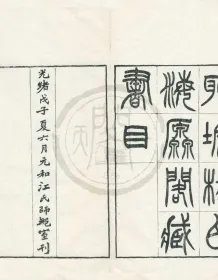 海源閣藏
書目
光緒戊子夏六月元和江氏師鄦室刊